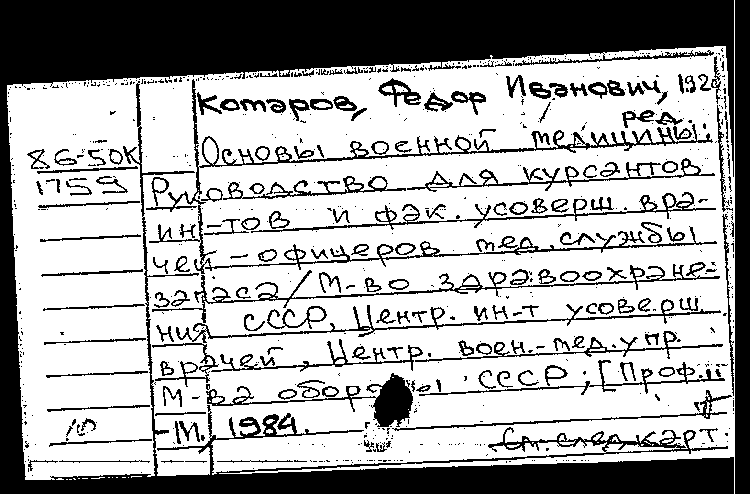 Комаров, Федор Иванович, 1920
ред.
86-50К Основы военной медицины:
1759 Руководство для курсантов
ин-тов и фак. усоверш. вра-
чей-офицеров мед. службы
запаса / М-во здравоохране-
ния СССР, Центр. ин-т усоверш.
врачей, Центр. воен.-мед. упр.
М-ва обороны СССР; [Проф.
10 -М., 1984.
См. след. карт.